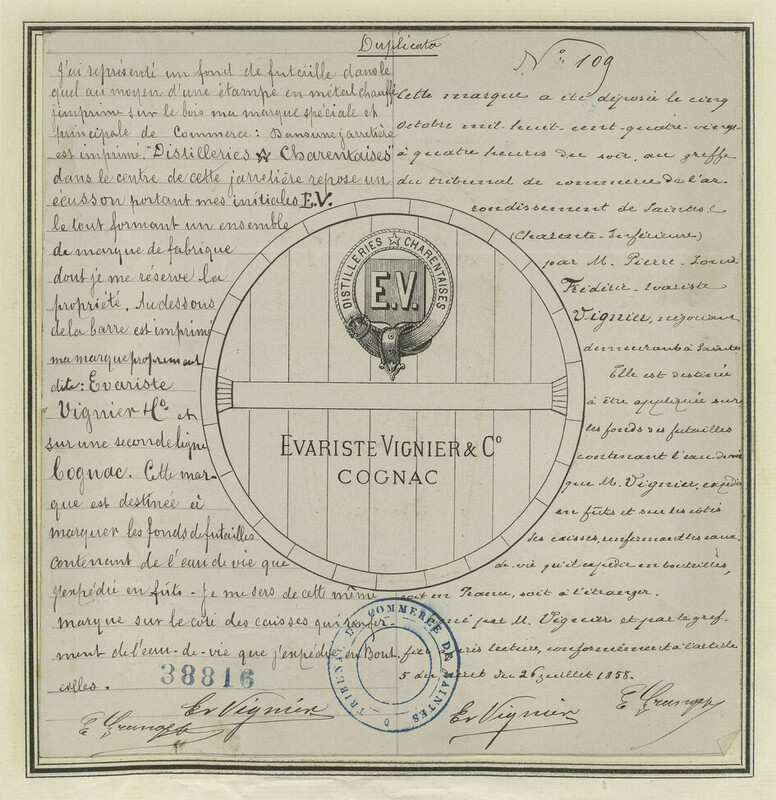 Duplicata
J'ai représenté un fond de futaille dans le
quel au moyen d'une étampe en métal chauffé
j'imprime sur le bois ma marque spéciale et
principale de Commerce: Dans une jarretière
est imprimé. "Distilleries ☆ Charentaises"
dans le centre de cette jarretière repose un
écusson portant mes initiales E.V.
le tout formant un ensemble
de marque de fabrique
dont je me réserve la
propriété. Au dessous
de la barre est imprimé
ma marque proprement
dite: Evariste
Vignier & Co. et
sur une seconde ligne
Cognac. Cette mar-
que est destinée à
marquer les fonds de futailles
contenant de l'eau de vie que
j'expédie en fûts - Je me sers de cette même
marque sur le côté des caisses qui renfer-
ment de l'eau-de-vie que j'expédie en Bout
eilles.
38816
E. Ev Vignier
No. 109
Cette marque a été déposée le cinq
Octobre mil-huit-cent-quatre-vingt
à quatre heures du soir, au greffe
du tribunal de commerce de l'ar-
rondissement de Saintes,
(Charente-Inférieure)
par M. Pierre-Louis
Frédéric-Evariste
Vignier, négociant
demeurant à Saintes
Elle est destinée
à être appliquée sur
les fonds des futailles
contenant l'eau-de-vie
que M. Vignier, expédie
en fûts et sur les côtés
des caisses, renfermant les eaux-
de-vie qu'il expédie en bouteilles,
soit en France, soit à l'étranger.
Signé par M. Vignier et par le gref-
fier après lecture, conformément à l'article
5 du décret du 26 juillet 1858.
Ev Vignier E.
DISTILLERIES ☆ CHARENTAISES
E.V.
EVARISTE VIGNIER & Co
COGNAC
TRIBUNAL DE COMMERCE DE SAINTES